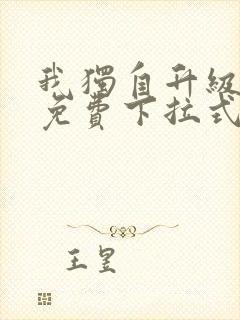 我獨自升級
免費下拉式
王昱